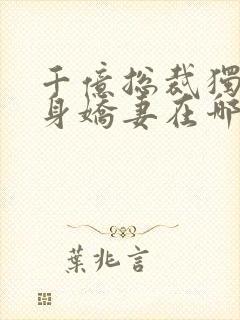 千億總裁獨
身嬌妻在哪
葉兆言